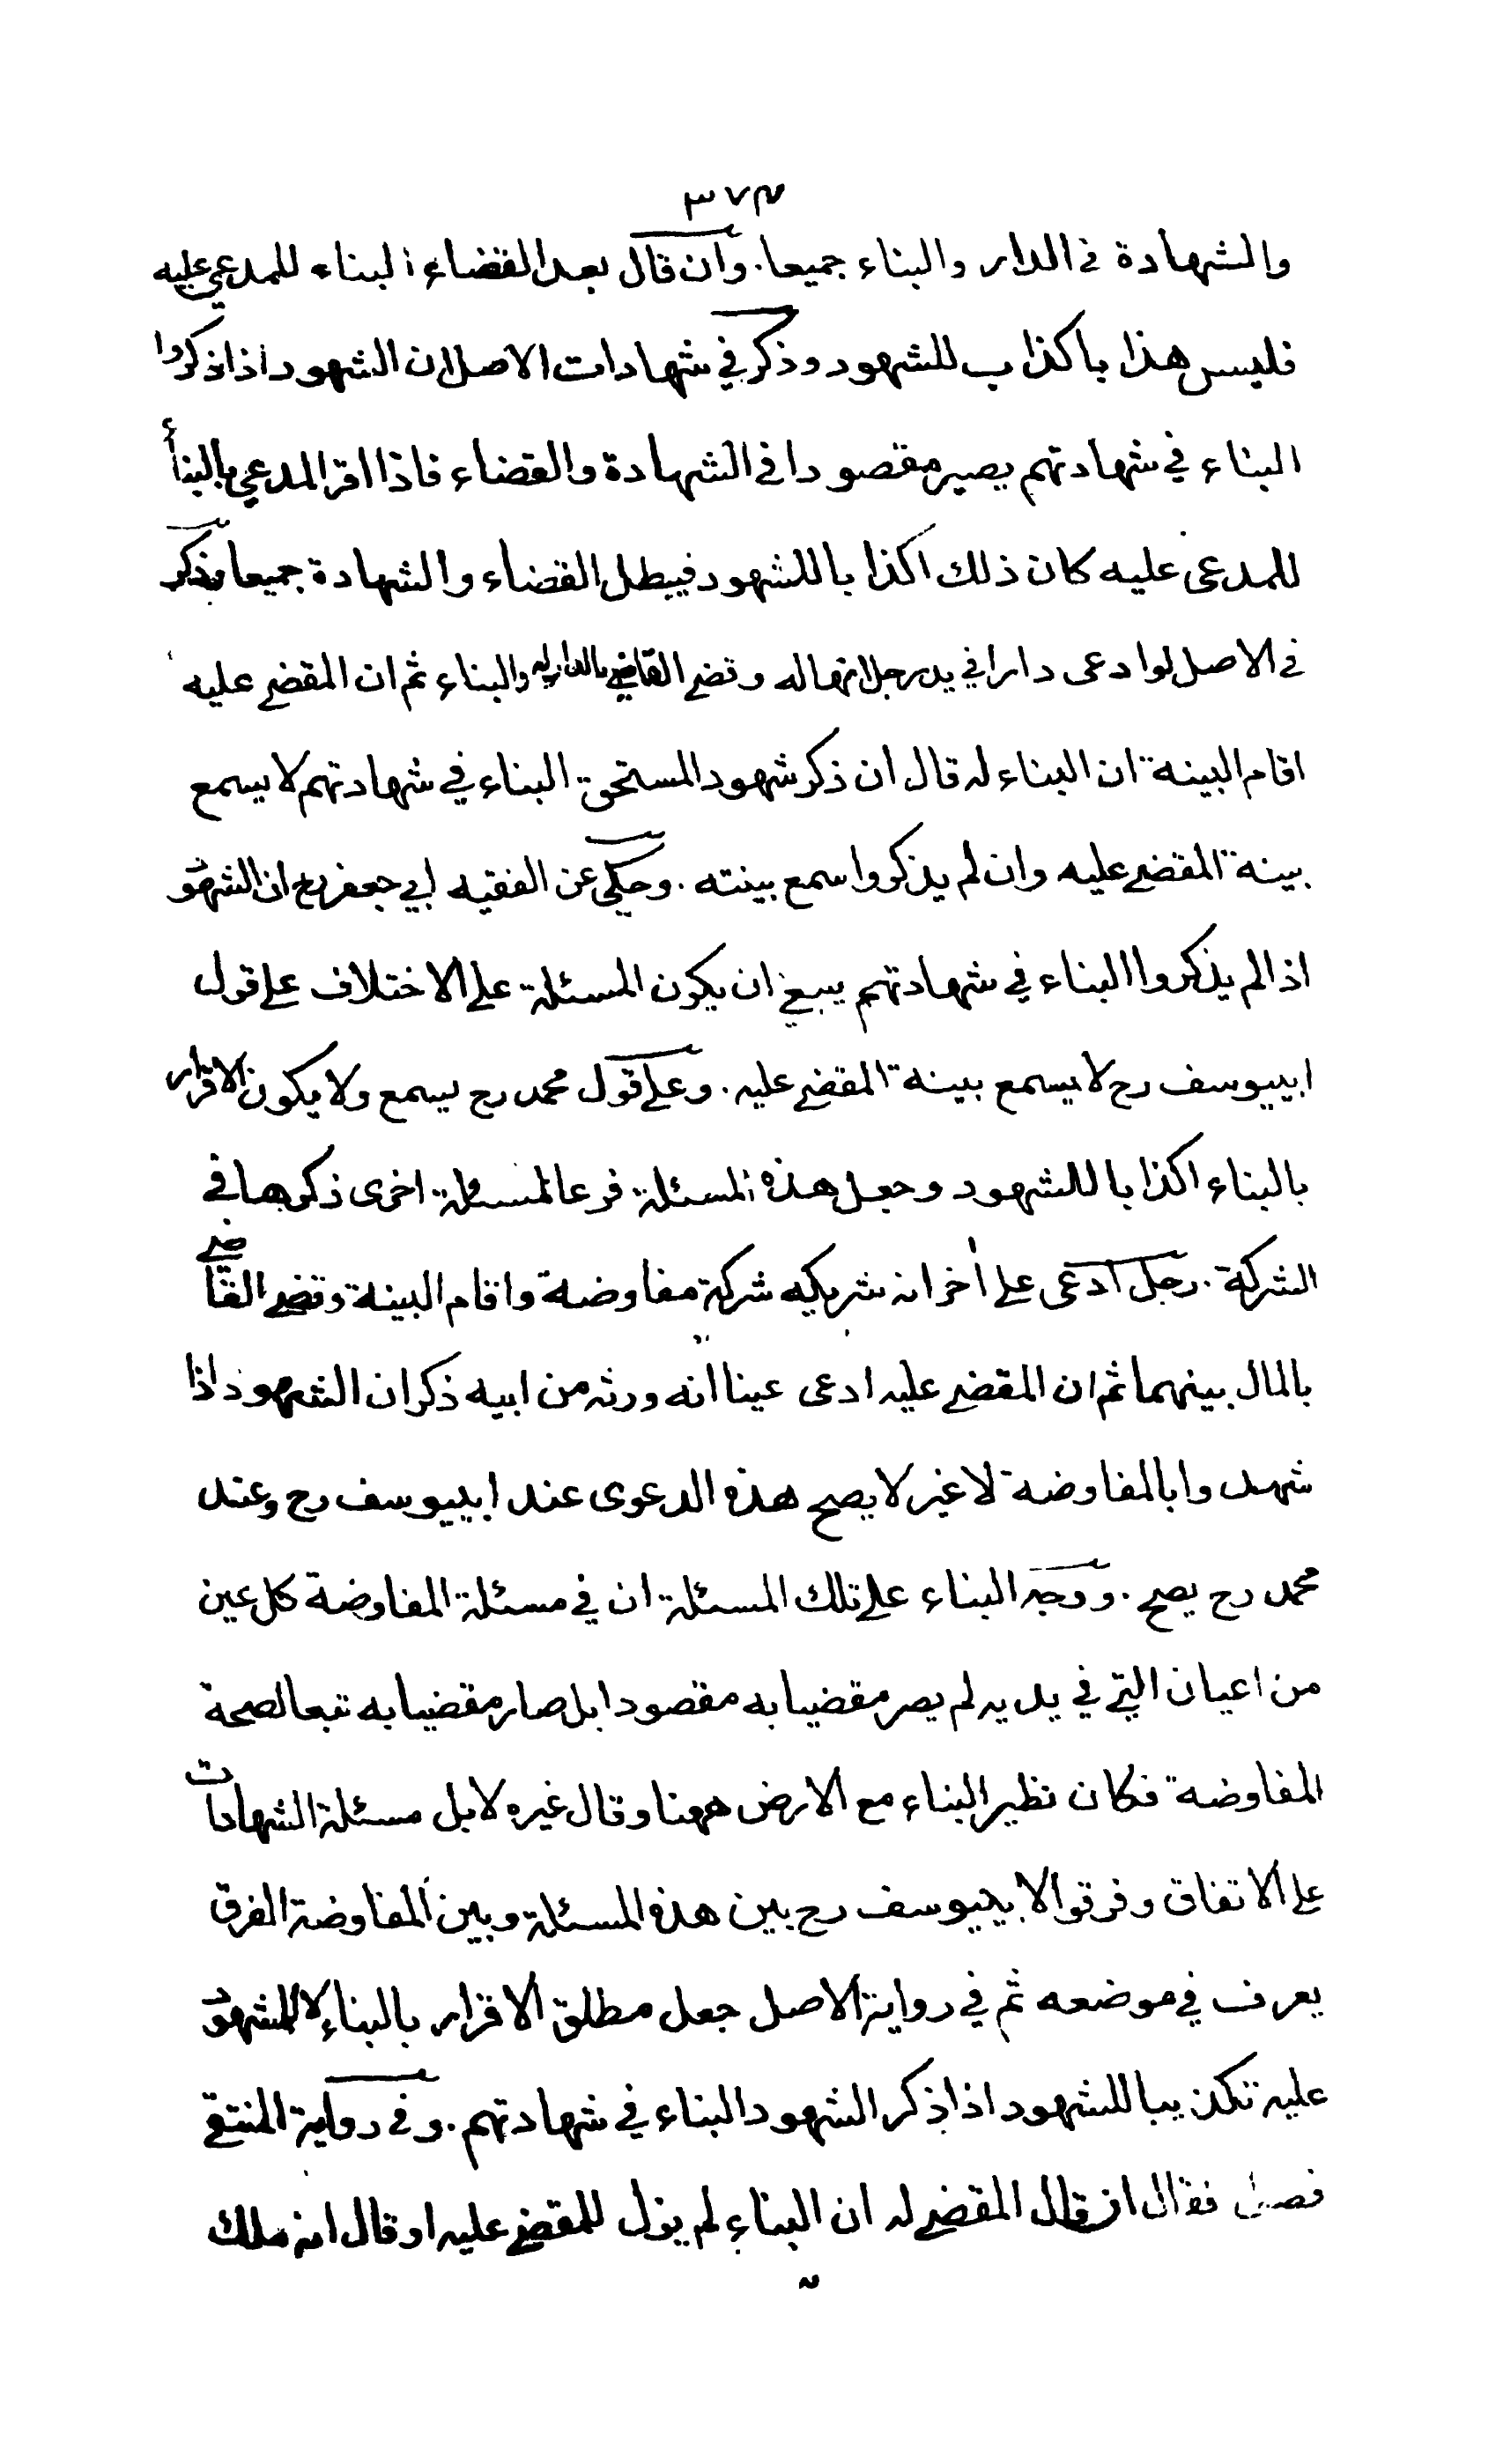 ٣٧٤
والشهادة في الدار والبناء جميعا. وان قال بعد القضاء البناء للمدعي عليه
فليس هذا باكذاب للشهود وذكر في شهادات الاصل ان الشهود اذا ذكروا
البناء في شهادتهم يصير مقصودا في الشهادة والقضاء فاذا اقر المدعي بالبناء
للمدعى عليه كان ذلك اكذابا للشهود فيبطل القضاء والشهادة جميعا وذكر
في الاصل لوادعى دارا في يد رجل انها له وقضے القاضے بالدار له والبناء ثم ان المقضے عليه
اقام البينة ان البناء له قال ان ذكر شهود المستحق البناء في شهادتهم لا يسمع
بينة المقضے عليه وان لم يذكروا سمع بينته. وحكي عن الفقيه ابي جعفر رح ان الشهود
اذا لم يذكروا البناء في شهادتهم ينبغے ان يكون المسئلة علے الاختلاف علے قول
ابييوسف رح لا يسمع بينة المقضے عليه. وعلے قول محمد رح يسمع ولا يكون الاقرار
بالبناء اكذابا للشهود وجعل هذه المسئلة فرعا لمسئلة اخرى ذكرها في
الشركة. رجل ادعى علے اخر انه شريكه شركة مفاوضة واقام البينة وقضے القاضے
بالمال بينهما ثم ان المقضے عليه ادعى عينا انه ورثه من ابيه ذكر ان الشهود اذا
شهدوا بالمفاوضة لا غير لا يصح هذه الدعوى عند ابييوسف رح وعند
محمد رح يصح. ووجه البناء علے تلك المسئلة ان في مسئلة المفاوضة كل عين
من اعيان التے في يديه لم يصر مقضيا به مقصودا بل صار مقضيا به تبعا لصحة
المفاوضة فكان نظير البناء مع الارض ههنا وقال غيره لا بل مسئلة الشهادات
علے الاتفاق وفرقوا لابييوسف رح بين هذه المسئلة وبين المفاوضة الفرق
يعرف في موضعه ثم في رواية الاصل جعل مطلق الاقرار بالبناء للمشهود
عليه تكذيبا للشهود اذا ذكر الشهود البناء في شهادتهم. وفي رواية المنتقے
فصل فقال ان قال المقضے له ان البناء لم يزل للمقضے عليه او قال انه ملك